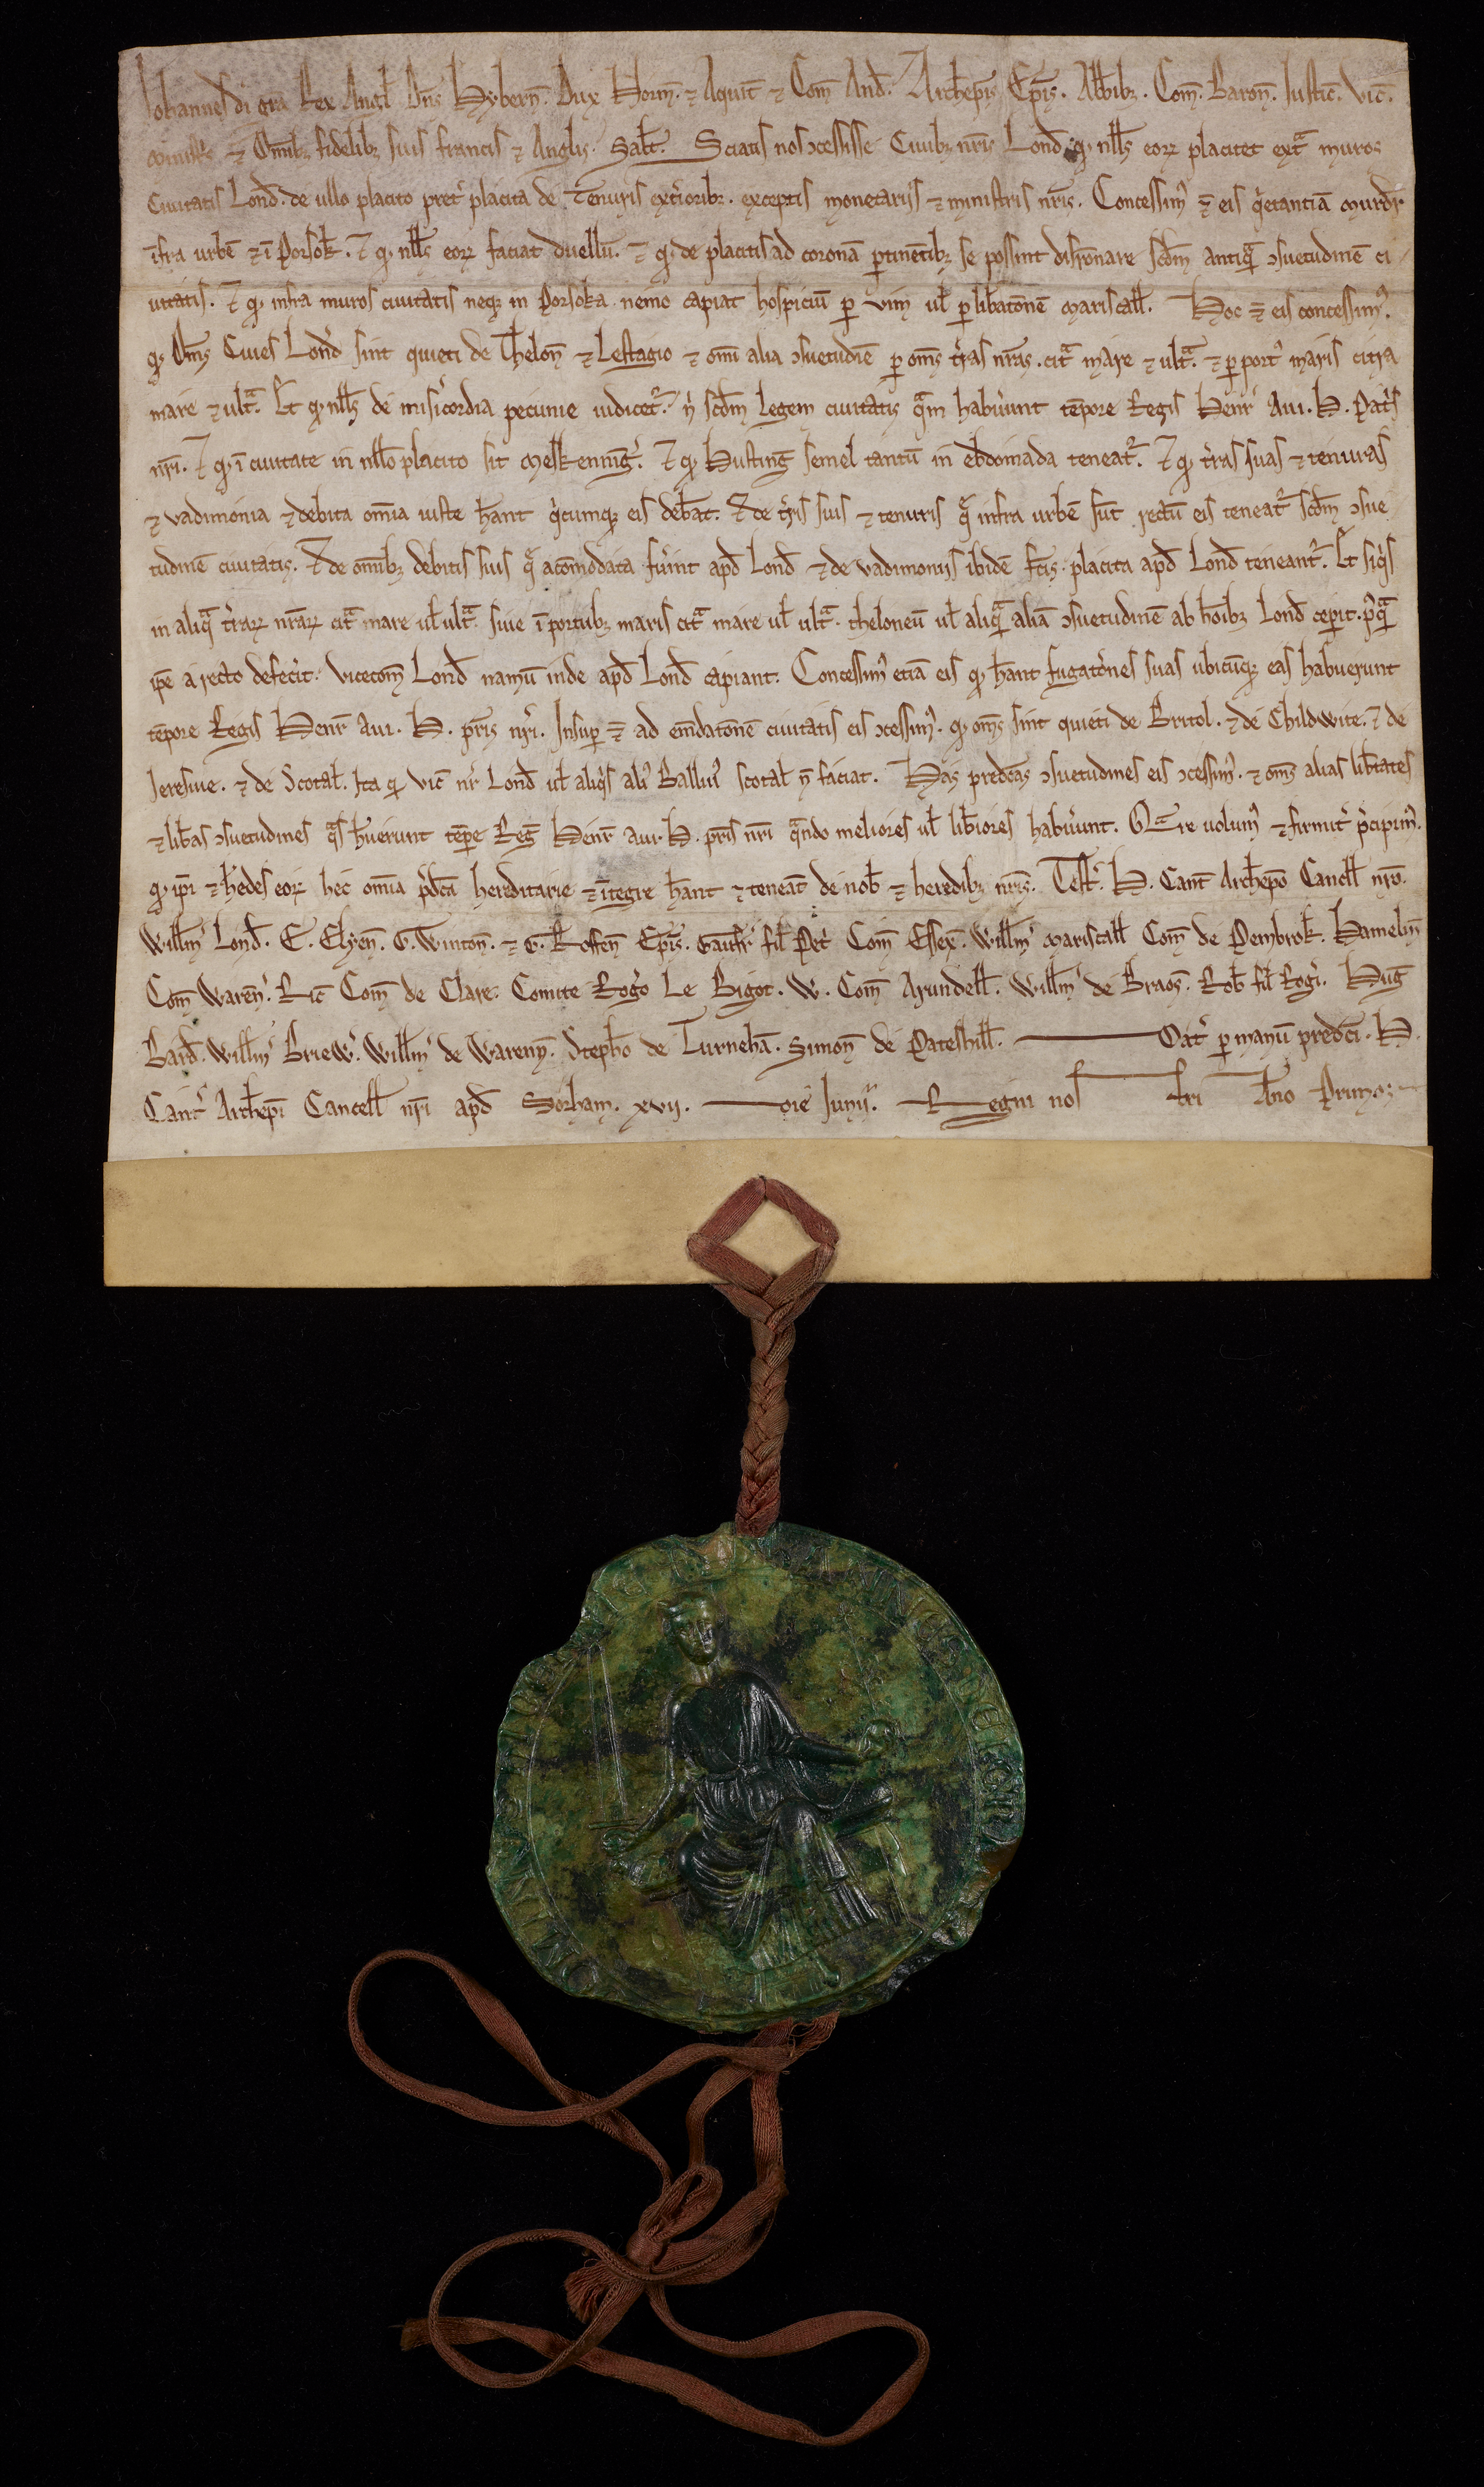 Johannes di gra Rex Angl Dns Hybern̄. Dux Norm̄. ⁊ Aquit̄ ⁊ Com̄ And̄. Archiep̄is Ep̄is. Abb̄ibꝫ. Com̄. Baron̄. Justic̄. Vic̄.
ministris ⁊ Om̄ibꝫ fidelibꝫ suis francis ⁊ Anglis. Salt̄. Sciatis nos ꝯcessisse Ciuibꝫ nr̄is Lond̄ qꝫ nll̄s eorꝝ placitet ext͛ muros
Ciuitatis Lond̄. de ullo placito pret̾ placita de Tenuris ext̾ioribꝫ. exceptis monetariis ⁊ ministris nr̄is. Concessim᷒ ⁊ eis q̾etantiā murdr̄
īfra urbē ⁊ ī Porsok̄. ⁊ qꝫ nll̄s eorꝝ faciat duellū. ⁊ qꝫ de placitis ad coronā ꝑtinētibꝫ se possint disr̄onare scd̄m antiq̄ ꝯsuetudinē ci
uitatis. ⁊ qꝫ infra muros ciuitatis neqꝫ in Porsoka nemo capiat hospiciū ꝑ vim ul̄ ꝑ lib̄atōnē mariscall̄. Hoc ⁊ eis concessim᷒.
qꝫ Om̄s Ciues Lond̄ sint quieti de Thelon̄ ⁊ Lestagio ⁊ om̄i alia ꝯsuetudīe ꝑ om̄s t̾ras nr̄as. cit͛ mare ⁊ ult͛. ⁊ ꝑ port᷒ maris citra
mare ⁊ ult͛. Et qꝫ nll̄s de mis̾icordia pecunie iudicet᷑. n̾ scd̄m legem ciuitatis q̄m habu̾unt tēpore Regis Henr̄ Aui. H. Pat̾s
nr̄i. ⁊ qꝫ ī ciuitate in nll̄o placito sit Meskenning̾. ⁊ qꝫ Husting̾ semel tantū in ebdomada teneat᷑. ⁊ qꝫ t̾ras suas ⁊ tenuras
⁊ vadimonia ⁊ debita om̄ia iuste h̄ant q̾cumqꝫ eis deb̄at. ⁊ de t̾ris suis ⁊ tenuris q̄ infra urbē sūt rectū eis teneat᷑ scd̄m ꝯsue
tudinē ciuitatis. ⁊ de om̄ibꝫ debitis suis q̄ acōmodata fu̾int apd̄ Lond̄ ⁊ de vadimoniis ibidē fc̄is. placita apd̄ Lond̄ teneant᷑. Et siq̾s
in aliq͛ t̾rarꝝ nr̄arꝝ cit͛ mare ul̄ ult͛. siue ī portubꝫ maris cit͛ mare ul̄ ult͛. theloneū ul̄ aliq̄ aliā ꝯsuetudinē ab hoībꝫ Lond̄ cep̾it. p᷒q͛
ip̄e a recto defec̾it. vicecom̄ Lond̄ namū inde apd̄ Lond̄ capiant. Concessim᷒ etiā eis qꝫ h̄ant fugatōnes suas ubicūqꝫ eas habuerunt
tēpore Regis Henr̄ aui. H. pr̄is nr̄i. Insuꝑ ⁊ ad em̄datōnē ciuitatis eis ꝯcessim᷒. qꝫ om̄s sint quieti de Brutol. ⁊ de Childwite. ⁊ de
Jeresiue. ⁊ de Scotal̄. Ita qꝫ vic̄ nr̄ Lond̄ ul̄ aliq̾s ali᷒ Balliu᷒ scotal̄ n̄ faciat. Has predc̄as ꝯsuetudines eis ꝯcessim᷒. ⁊ om̄s alias lib̄tates
⁊ lib̄as ꝯsuetudines q͛s h̄uerunt tēpe Reg̾ Henr̄ aui. H. pr̄is nr̄i q̄ndo meliores ul̄ lib̄iores habu̾unt. Q̄re uolum᷒ ⁊ firmit̾ p̾cipim᷒.
qꝫ ip̄i ⁊ h̄edes eorꝝ hec om̄ia p̾dc̄a hereditarie ⁊ īntegre h̄ant ⁊ teneāt de nob̄ ⁊ heredibꝫ nr̄is. Test̾. H. Cant̄ Archiep̄o Cancll̄ nr̄o.
Will̄m᷒ Lond̄. E. Elyen̄. G. Winton̄. ⁊ G. Roffen̄ Ep̄is. Gaufr̄ fil̄ Pet̾ Com̄ Essex̄. Will̄m᷒ Mariscall̄ Com̄ de Pembrok̄. Hamelin̄
Com̄ Waren̄. Ric̄ Com̄ de Clare. Comite Rog̾o Le Bigot. W. Com̄ Arundell̄. Will̄m᷒ de Braos̄. Rob̄ fil̄ Rog̾i. Hug̾
Bard̄. Will̄m᷒ Briew̾. Will̄m᷒ de Warenn̄. Steph̄o de Turnehā. Simon̄ de Pateshill̄. Dat̾ ꝑ manū predc̄i. H.
Cant̾ Archiep̄i Cancell̄ nr̄i apd̄ Sorham. xvij. die Junij. Regni nostri Āno Primo